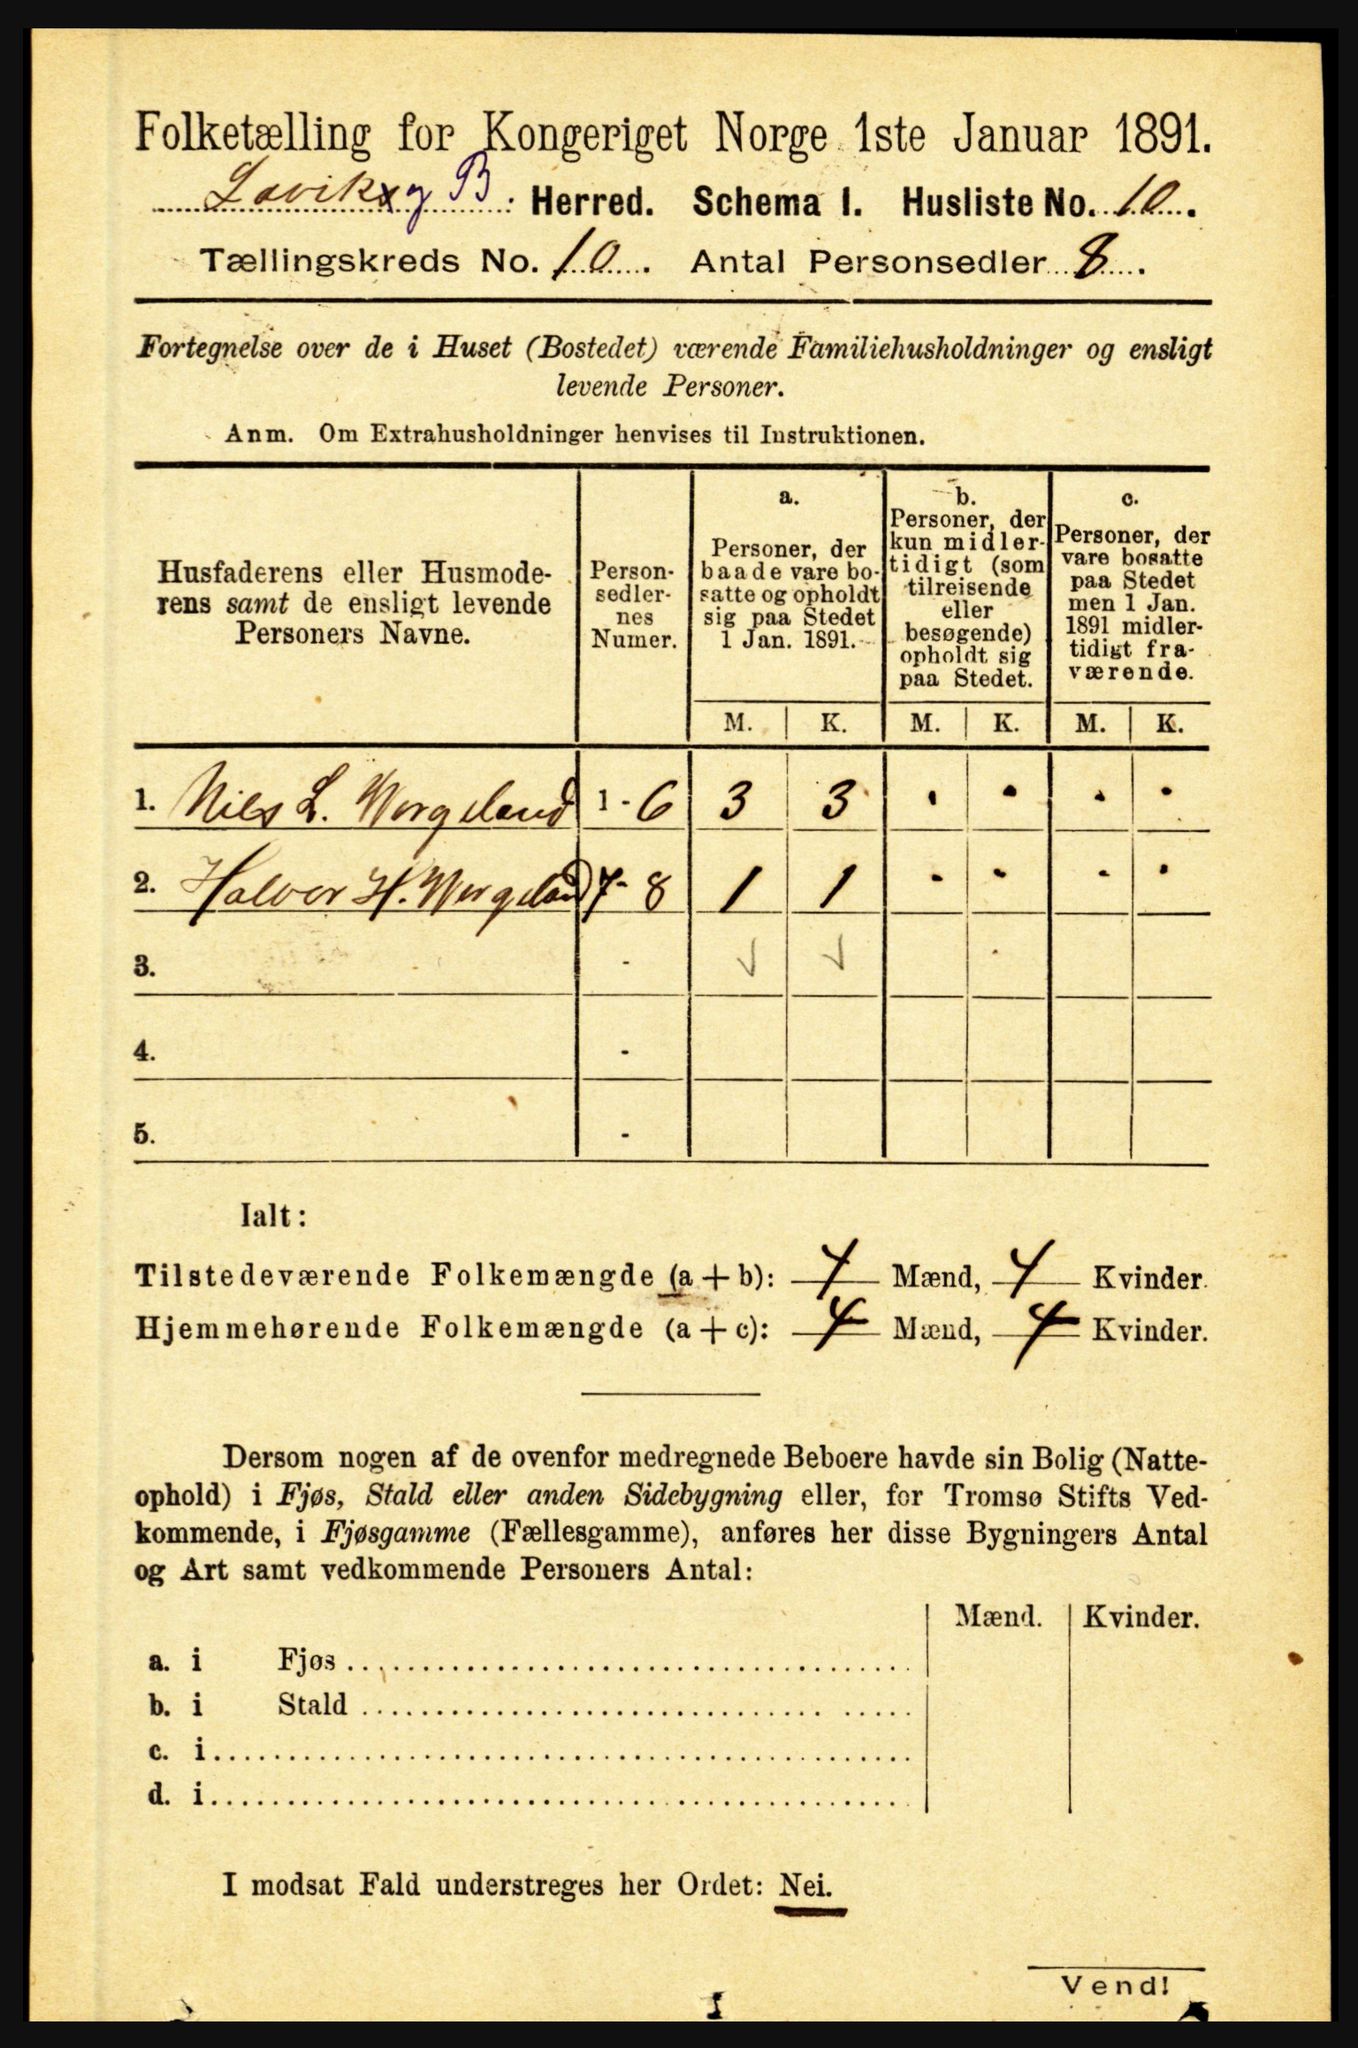 Folketælling for Kongeriget Norge 1ste Januar 1891.
Lavik og B. Herred. Schema I. Husliste No. 10.
Tællingskreds No. 10. Antal Personsedler 8.
Fortegnelse over de i Huset (Bostedet) værende Familiehusholdninger og ensligt
levende Personer.
Anm. Om Extrahusholdninger henvises til Instruktionen.
Husfaderens eller Husmode-
rens samt de ensligt levende
Personers Navne.
Person-
sedler-
nes
Numer.
a.
Personer, der
baade vare bo-
satte og opholdt
sig paa Stedet
1 Jan. 1891.
b.
Personer, der
kun midler-
tidigt (som
tilreisende
eller
besøgende)
opholdt sig
paa Stedet.
c.
Personer, der
vare bosatte
paa Stedet
men 1 Jan.
1891 midler-
tidigt fra-
værende.
M. K. M. K. M. K.
1. Nils L. Wergeland 1 - 6 3 3 . . . .
2. Halvor H. Wergeland 7 - 8 1 1 . . . .
3. -
4. -
5. -
Ialt:
Tilstedeværende Folkemængde (a + b): 4 Mænd, 4 Kvinder.
Hjemmehørende Folkemængde (a + c): 4 Mænd, 4 Kvinder.
Dersom nogen af de ovenfor medregnede Beboere havde sin Bolig (Natte-
ophold) i Fjøs, Stald eller anden Sidebygning eller, for Tromsø Stifts Ved-
kommende, i Fjøsgamme (Fællesgamme), anføres her disse Bygningers Antal
og Art samt vedkommende Personers Antal:
Mænd. Kvinder.
a. i Fjøs
b. i Stald
c. i
d. i
I modsat Fald understreges her Ordet: Nei.
Vend!